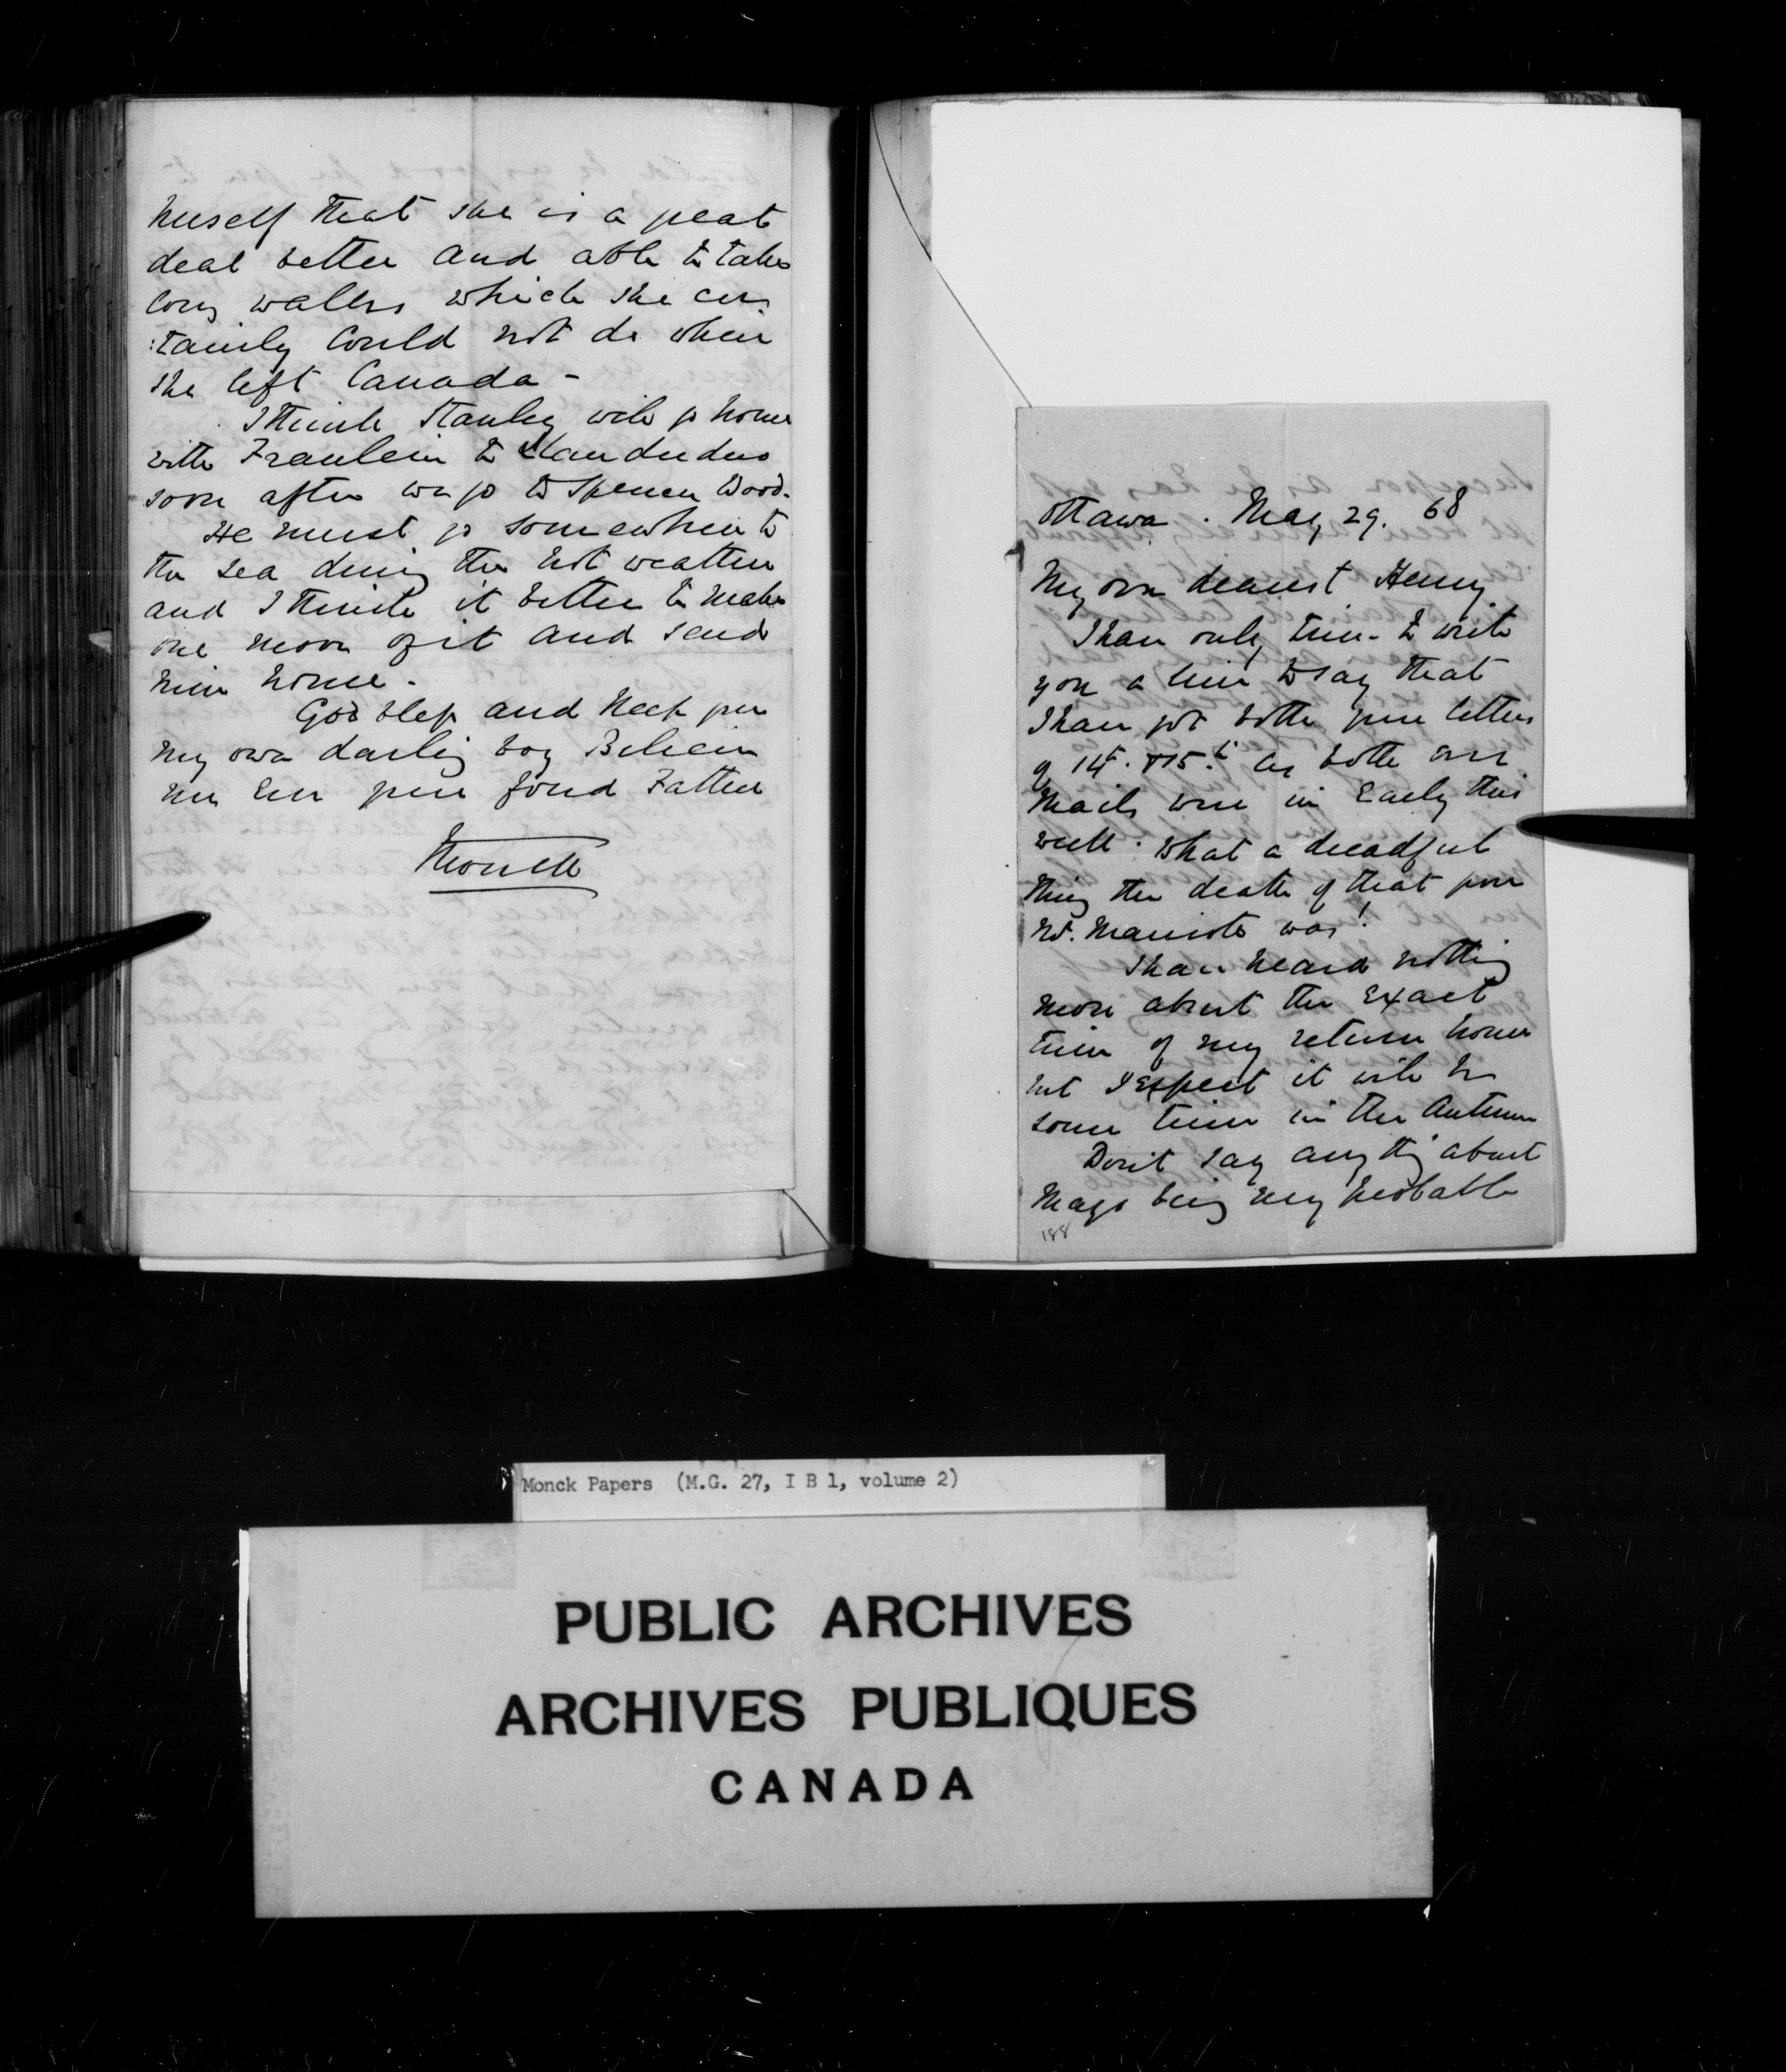 herself that she is a great
deal better and able to take
long walks which she cer
:tainly could not do when
she left Canada -
I think Stanley will go home
with Fraulein to Llandudno
soon after we go to Spencer Wood.
He must go somewhere to
the sea during the hot weather
and I think it better to make
one move of it and send
him home.
God bless and keep you
my own darling boy Believe
me ever your fond Father
Monck
Ottawa. May 29. 68
My own dearest Henry
I have only time to write
you a line to say that
I have got both your letters
of 14th. & 15th. as both our
Mails were in early this
week. What a dreadful
thing the death of that poor
was!
I have heard nothing
more about the exact
time of my return home
but I expect it will be
some time in the Autumn
Don't say anything about
Mayo being my probable
188
Monck Papers (M.G. 27, I B 1, volume 2)
PUBLIC ARCHIVES
ARCHIVES PUBLIQUES
CANADA